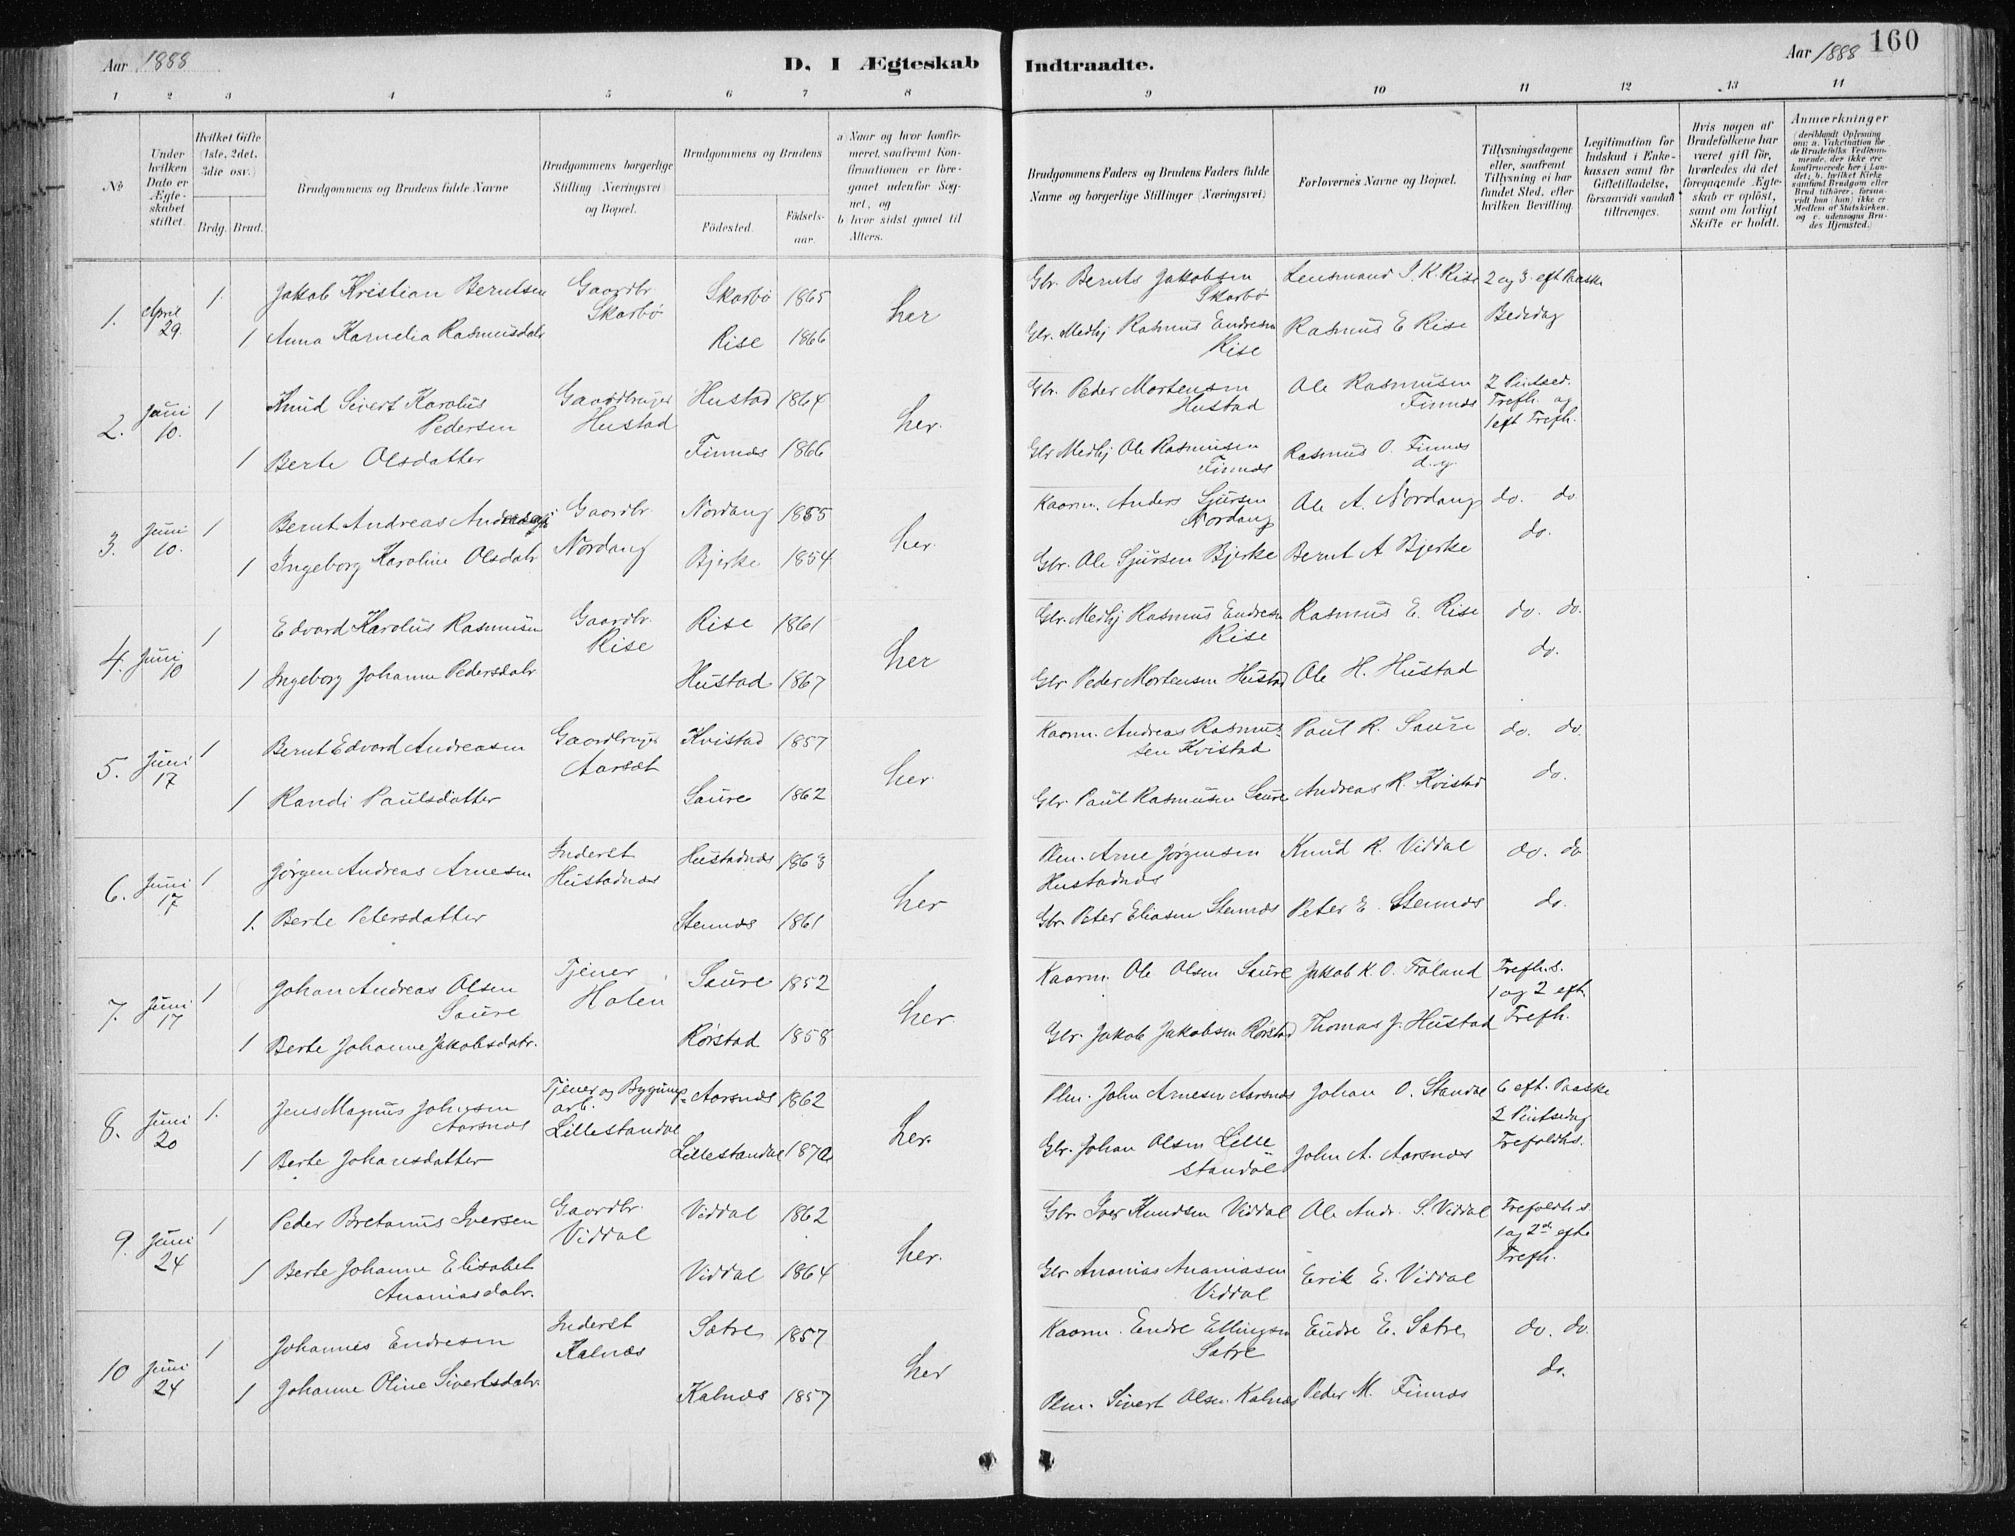 Aar 1888
D. I Ægteskab Indtraadte.
Aar 1888 160
1 2 3 4 5 6 7 8 9 10 11 12 13 14
No
Under hvilken Dato er Ægteskabet stiftet.
Hvilket Gifte (1ste, 2det, 3die osv.)
Brdg. Brud.
Brudgommens og Brudens fulde Navne
Brudgommens borgerlige Stilling (Næringsvei) og Bopæl.
Brudgommens og Brudens
Fødested. Fødselsaar.
a) Naar og hvor konfirmeret, saafremt Konfirmationen er foregaaet udenfor Sognet, og
b) hvor sidst gaaet til Alters.
Brudgommens Faders og Brudens Faders fulde Navne og borgerlige Stillinger (Næringsvei)
Forlovernes Navne og Bopæl.
Tillysningsdagene eller, saafremt Tillysning ei har fundet Sted, efter hvilken Bevilling.
Legitimation for Indskud i Enkekassen samt for Giftetilladelse, forsaavidt saadan tiltrænges.
Hvis nogen af Brudefolkene har været gift før, hvorledes da det foregaaende Ægteskab er opløst, samt om lovligt Skifte er holdt.
Anmærkninger (deriblandt Oplysning om: a. Vakcination for de Brudefolks Vedkommende, der ikke ere konfirmerede her i Landet; b. hvilket Kirkesamfund Brudgom eller Brud tilhører, forsaavidt han (hun) ikke er Medlem af Statskirken, og c. udensogns Brudes Hjemsted.)
1. April 29 1 Jakob Kristian Berntsen Gaardbr. Skarbø Skarbø 1865 her Gbr. Bernts Jakobsen Skarbø Lensmand J. K. Rise 2 og 3 eft Paaske
1 Anna Kornelia Rasmusdatr Rise 1866 Gbr. Medhj Rasmus Endresen Rise Rasmus E Rise Bededag
2. Juni 10. 1 Knud Sivert Karolus Pedersen Gaardbruger Hustad Hustad 1864 her. Gbr. Peder Mortensen Hustad Ole Rasmusen Finnæs 2 Pintsed. Trefh. og 1 eft Trefh.
1 Berte Olsdatter Finnæs 1866 Gbr Medhj Ole Rasmusen Finnæs Rasmus O. Finnæs d. y.
3. Juni 10. 1 Bernt Andreas Gaardbr Nordang Nordang 1855 her. Kaarm. Anders Sjursen Nordang Ole A. Nordang do. do
1 Ingeborg Karoline Olsdatr Bjerke 1854 Gbr. Ole Sjursen Bjerke Bernt A Bjerke do.
4. Juni 10 1 Edvard Karolus Rasmusen Gaardbr. Rise Rise 1861 her Gbr. Medhj Rasmus Endresen Rise Rasmus E. Rise do. do.
1 Ingeborg Johanne Pedersdatr Hustad 1867 Gbr Peder Mortensen Hustad Ole H. Hustad do.
5. Juni 17 1 Bernt Edvard Andreasen Gaardbruger Aarsæt Kvistad 1857 her. Kaarm. Andreas Rasmussen Kvistad Paul R. Saure do. do.
1 Randi Paulsdatter Saure 1862 Gbr. Paul Rasmusen Saure Andreas R. Kvistad do.
6. Juni 17 1 Jørgen Andreas Arnesen Inderst Hustadnæs Hustadnæs 1863 her Plm. Arne Jørgensen Hustadnæs Knud R. Viddal do. do
1. Berte Petersdatter Stennæs 1861 Gbr. Peter Eliasen Stennæs Peter E. Stennæs do.
7. Juni 17 1 Johan Andreas Olsen Saure Tjener Holen Saure 1852 her. Kaarm. Ole Olsen Saure Jakob K. O. Frøland Trefh.s. 1 og 2 eft. Trefh.
1 Berte Johanne Jakobsdatr. Rørstad 1858 Gbr. Jakob Jakobsen Rørstad Thomas J. Hustad
8. Juni 20 1. Jens Magnus Johnsen Aarsnæs Tjener og Bygnings arb. Lillestandal Aarsnæs 1862 her. Plm. John Arnesen Aarsnæs Johan O. Standal 6 eft. Paaske 2 Pintsedag Trefoldhs.
1 Berte Johansdatter Lillestandal 1870 Gbr. Johan Olsen Lillestandal John A. Aarsnæs
9. Juni 24 1 Peder Bretanus Iversen Gaardbr. Viddal Viddal 1862 her. Gbr. Iver Knudsen Viddal Ole Andr. S. Viddal Trefoldh.s. 1 og 2de efte Trefh.
1 Berte Johanne Elisabet Ananiasdatr. Viddal 1864 Gbr Ananias Ananiasen Viddal Erik E. Viddal
10 Juni 24 1 Johannes Endresen Inderst Kalnæs Sætre 1857 her Kaarm. Endre Ellingsen Sætre Endre E. Sætre do. do.
1 Johanne Oline Sivertsdatr. Kalnæs 1857 Plm. Sivert Olsen Kalnæs Peder M. Finnæs do.